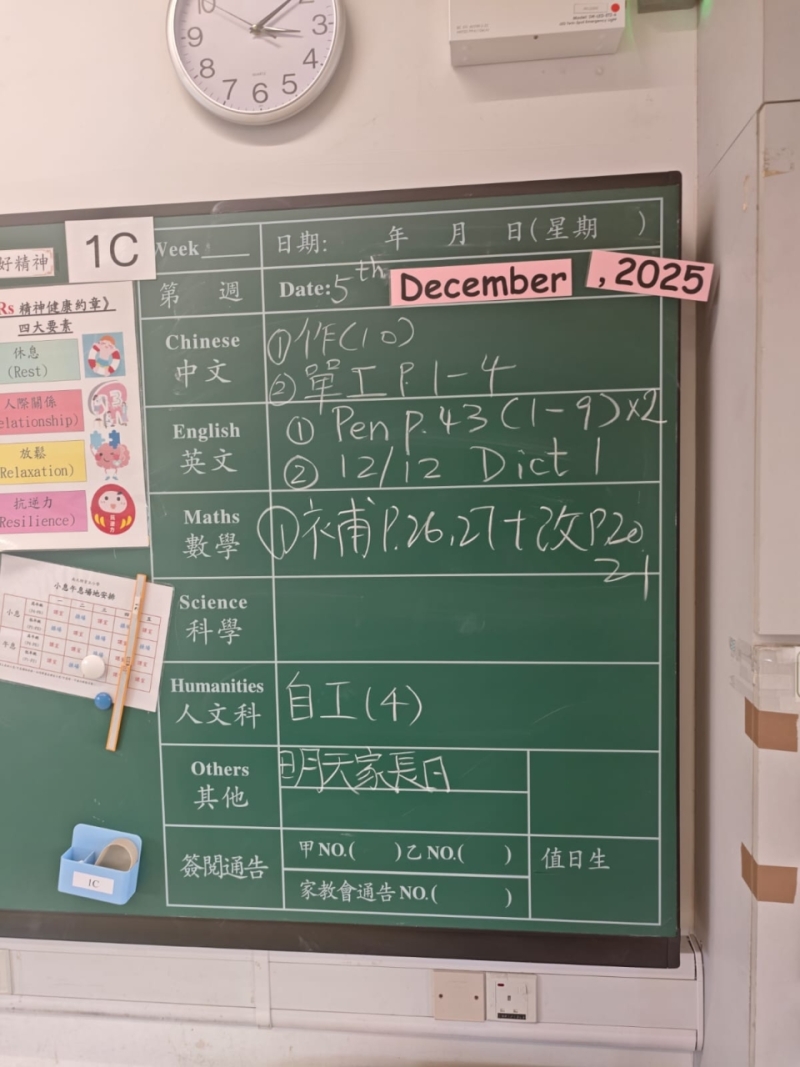 10
2
3
9
4
8
5
7
6
QUARTZ
好精神
1C
Week
日期: 年 月 日(星期 )
第 週
Date: 5th December , 2025
Rs 精神健康約章》
四大要素
休息
(Rest)
人際關係
elationship)
放鬆
Relaxation)
抗逆力
Resilience)
Chinese
中文
①作(10)
②單工 P.1-4
English
英文
① Pen p.43 (1-9)×2
② 12/12 Dict 1
Maths
數學
①補P.26,27+改P.20
21
Science
科學
Humanities
人文科
自工(4)
Others
其他
明天家長日
簽閱通告
甲NO.( )乙NO.( )
家教會通告NO.( )
值日生
小息午息場地安排
小息
午息
1C